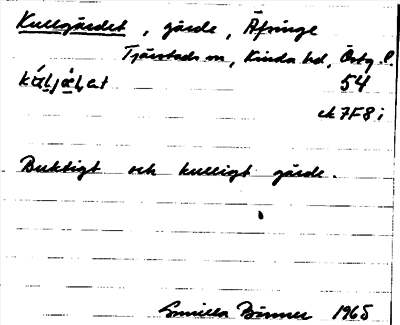 Kullgärdet, gärde, Äfninge
Tjärstads sn, Kinda hd, Östg. l.
54
ek 7F8i
Buktigt och kulligt gärde.
Gunilla Bonner 1965